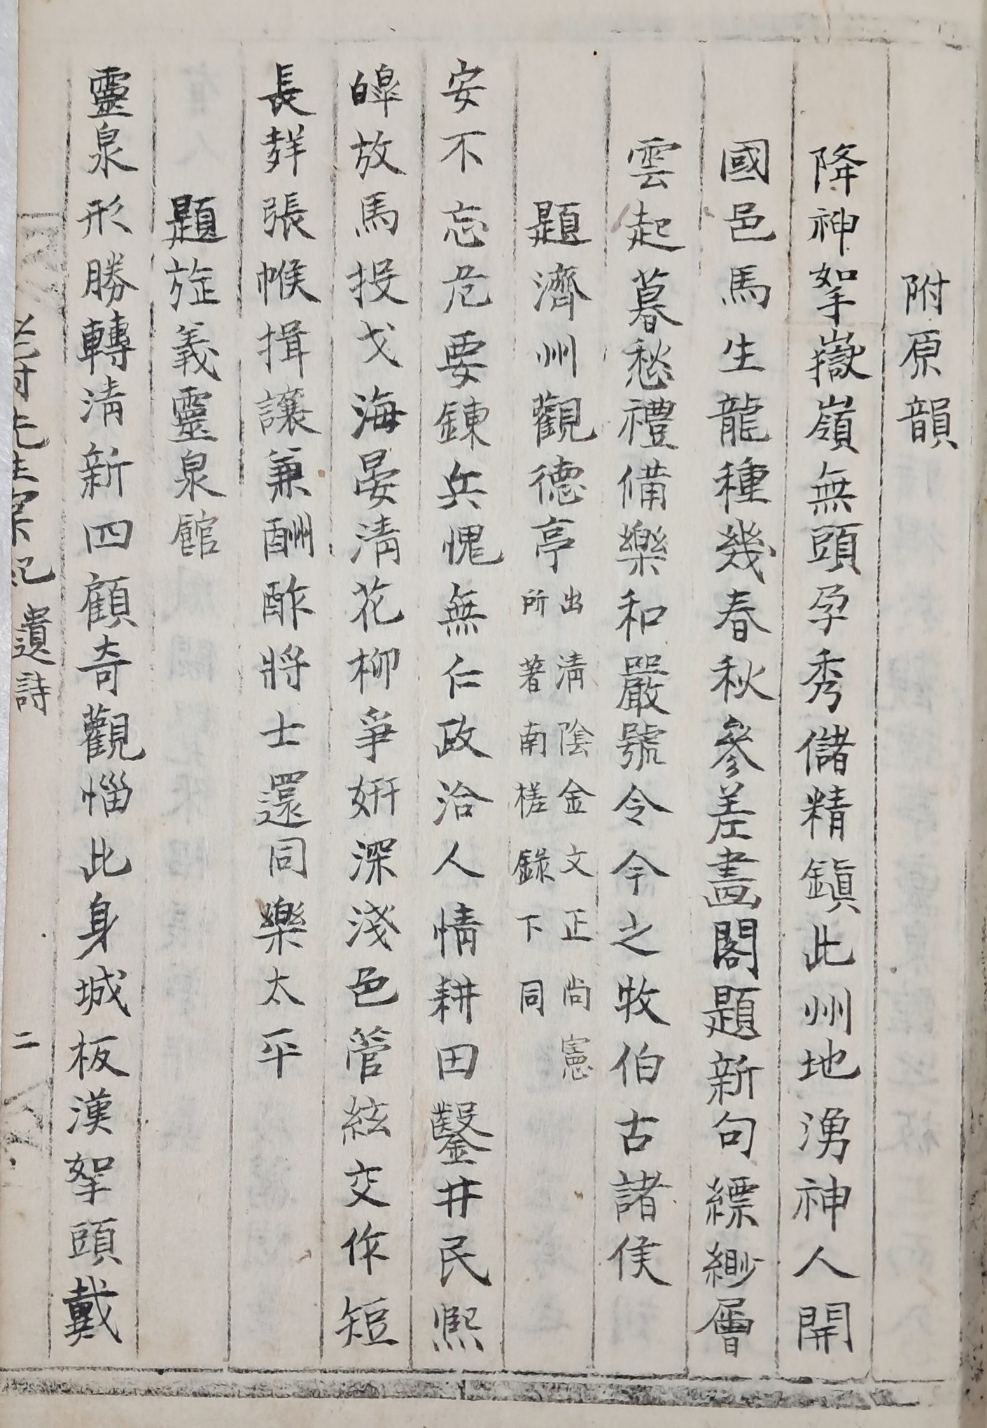 附原韻
降神拏嶽嶺無頭孕秀儲精鎭此州地湧神人開
國邑馬生龍種幾春秋參差畵閣題新句縹緲層
雲起暮愁禮備樂和嚴號令今之牧伯古諸侯
題濟州觀德亭出淸陰金文正尙憲
所著南槎錄下同
安不忘危要鍊兵愧無仁政洽人情耕田鑿井民熙
皥放馬投戈海晏淸花柳爭姸深淺色管絃交作短
長㨾張帿揖讓兼酬酢將士還同樂太平
題旌義靈泉館
靈泉形勝轉淸新四顧奇觀惱此身城板漢拏頭戴
先生實紀 遺詩 二